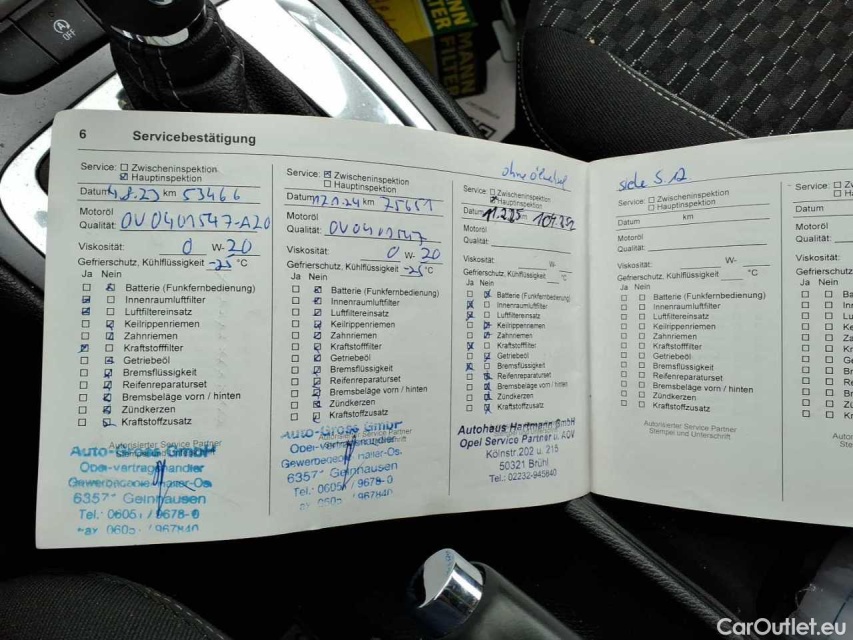 OFF
MANN
FILTER
MANN
FILTER
6 Servicebestätigung
Service: Zwischeninspektion
Hauptinspektion
Datum 4.8.23 km 53466
Motoröl
Qualität: OV0401547-A20
Viskosität: 0 W- 20
Gefrierschutz, Kühlflüssigkeit -25 °C
Ja Nein
Batterie (Funkfernbedienung)
Innenraumluftfilter
Luftfiltereinsatz
Keilrippenriemen
Zahnriemen
Kraftstofffilter
Getriebeöl
Bremsflüssigkeit
Reifenreparaturset
Bremsbeläge vorn / hinten
Zündkerzen
Kraftstoffzusatz
Autorisierter Service Partner
Auto-Gross GmbH
Opel-vertragshändler
6357 Gelnhausen
Tel.: 06051 / 9678-0
Fax 06051 / 967840
Service: Zwischeninspektion
Hauptinspektion
Datum 12.1.24 km 75651
Motoröl
Qualität: OV0401547
Viskosität: 0 W- 20
Gefrierschutz, Kühlflüssigkeit -25 °C
Ja Nein
Batterie (Funkfernbedienung)
Innenraumluftfilter
Luftfiltereinsatz
Keilrippenriemen
Zahnriemen
Kraftstofffilter
Getriebeöl
Bremsflüssigkeit
Reifenreparaturset
Bremsbeläge vorn / hinten
Zündkerzen
Kraftstoffzusatz
Autorisierter Service Partner
Auto-Gross GmbH
Opel-vertragshändler
6357 Gelnhausen
Tel.: 06051 / 9678-0
967840
ohne Ölwechsel
Service: Zwischeninspektion
Hauptinspektion
Datum km
Motoröl
Qualität:
Viskosität: W-
Gefrierschutz, Kühlflüssigkeit °C
Ja Nein
Batterie (Funkfernbedienung)
Innenraumluftfilter
Luftfiltereinsatz
Keilrippenriemen
Zahnriemen
Kraftstofffilter
Getriebeöl
Bremsflüssigkeit
Reifenreparaturset
Bremsbeläge vorn / hinten
Zündkerzen
Kraftstoffzusatz
Autohaus Hartmann GmbH
Opel Service Partner u. AOV
Kölnstr.202 u. 215
50321 Brühl
Tel.: 02232-945840
siehe S. 12
Service: Zwischeninspektion
Hauptinspektion
Datum km
Motoröl
Qualität:
Viskosität: W-
Gefrierschutz, Kühlflüssigkeit °C
Ja Nein
Batterie (Funkfernbedienung)
Innenraumluftfilter
Luftfiltereinsatz
Keilrippenriemen
Zahnriemen
Kraftstofffilter
Getriebeöl
Bremsflüssigkeit
Reifenreparaturset
Bremsbeläge vorn / hinten
Zündkerzen
Kraftstoffzusatz
Autorisierter Service Partner
Stempel und Unterschrift
Service: Z
H
Datum
Motoröl
Qualität:
Viskosität:
Gefrierschutz
Ja Nein
CarOutlet.eu